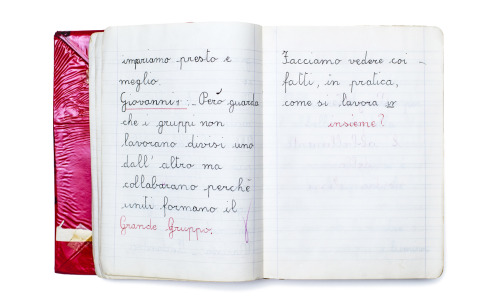 impariamo presto e
meglio
Giovanni: - Però guarda
che i gruppi non
lavorano divisi uno
dall' altro ma
collaborano perchè
uniti formano il
Grande Gruppo.
Facciamo vedere coi
fatti, in pratica,
come si lavora
insieme?